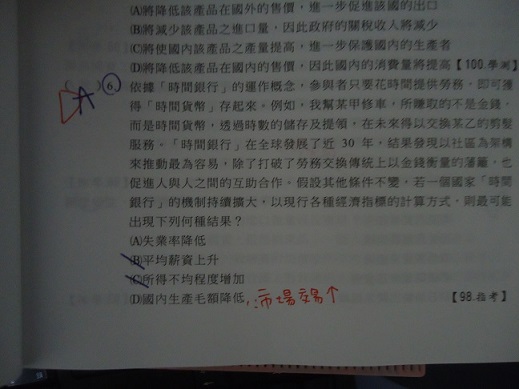 (A)將降低該產品在國外的售價，進一步促進該國的出口
(B)將減少該產品之進口量，因此政府的關稅收入將減少
(C)將使國內該產品之產量提高，進一步保護國內的生產者
(D)將降低該產品在國內的售價，因此國內的消費量將提高【100.學測】
( A )⑥依據「時間銀行」的運作概念，參與者只要花時間提供勞務，即可獲
得「時間貨幣」存起來。例如，我幫某甲修車，所賺取的不是金錢，
而是時間貨幣，透過時數的儲存及提領，在未來得以交換某乙的剪髮
服務。「時間銀行」在全球發展了近 30 年，結果發現以社區為架構
來推動最為容易，除了打破了勞務交換傳統上以金錢衡量的藩籬，也
促進人與人之間的互助合作。假設其他條件不變，若一個國家「時間
銀行」的機制持續擴大，以現行各種經濟指標的計算方式，則最可能
出現下列何種結果？
(A)失業率降低
(B)平均薪資上升
(C)所得不均程度增加
(D)國內生產毛額降低 ∵市場交易↑ 【98.指考】